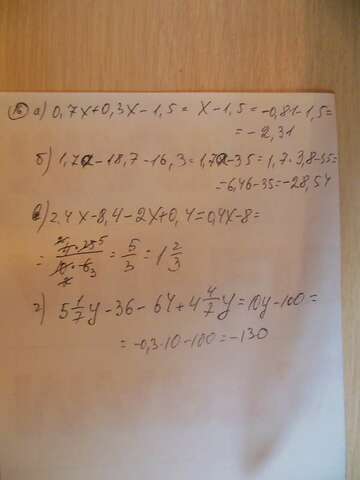 а) 0,7x+0,3x-1,5= x-1,5=-0,81-1,5=
=-2,31
б) 1,7a-18,7-16,3=1,7a-35=1,7·3,8-35=
=6,46-35=-28,54
в) 2,4x-8,4-2x+0,4=0,4x-8=
= = 5/3 = 1 2/3
г) 5 1/7 y-36-64+4 4/7 y=10y-100=
=-0,3·10-100=-130